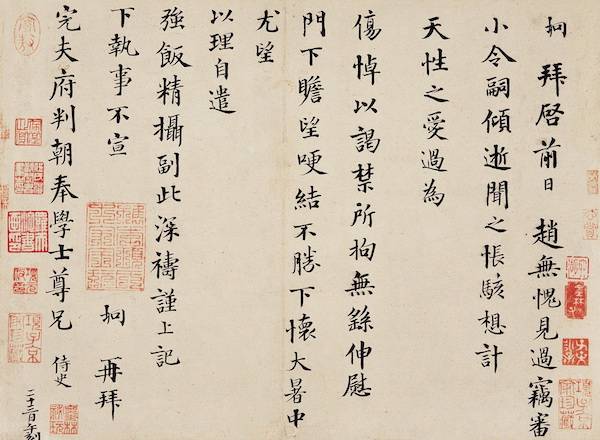 坰拜啓前日趙無愧見過竊審
小令嗣傾逝聞之悵駭想計
天性之愛過為
傷悼以謁禁所拘無繇伸慰
門下瞻望哽結不勝下懷大暑中
尤望
以理自遣
強飯精攝副此深禱謹上記
下執事不宣
坰再拜
完夫府判朝奉學士尊兄侍史
二十三日午刻